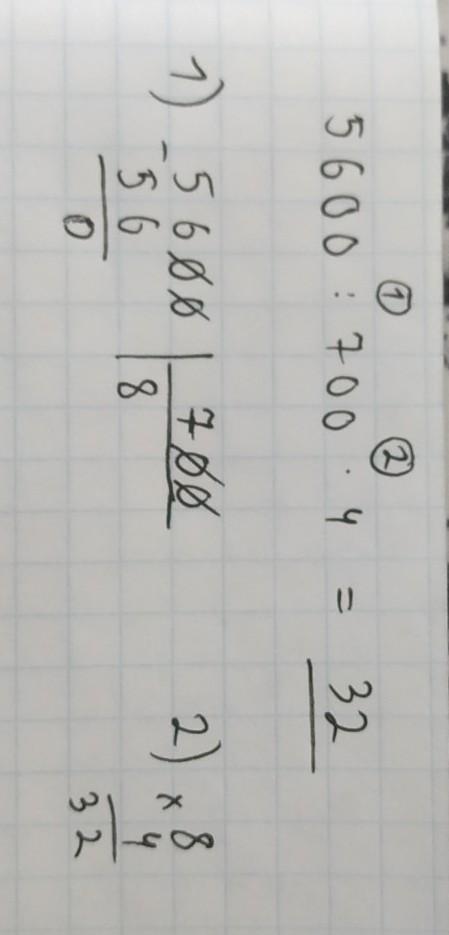 ① ②
5600 : 700 · 4 = 32
1) -5600 | 700 2) × 8
56 | 8 4
0 32